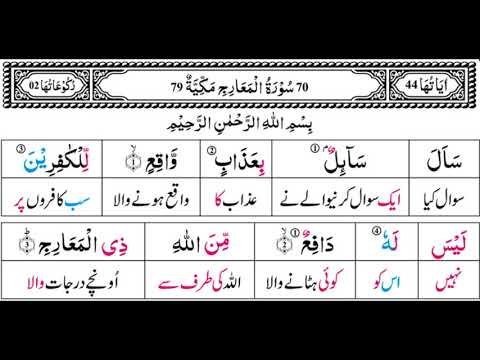 اٰيَاتُهَا 44 70 سُوْرَةُ الْمَعَارِجِ مَكِّيَّةٌ 79 رُكُوْعَاتُهَا 02
بِسْمِ اللهِ الرَّحْمٰنِ الرَّحِيْمِ
سَاَلَ سَآىِٕلٌۢ ① بِعَذَابٍ ② وَّاقِعٍ ۝۱ لِّلْكٰفِرِيْنَ ③
سوال کیا ایک سوال کرنیوالے نے عذاب کا واقع ہونے والا سب کافروں پر
لَيْسَ لَهٗ ④ دَافِعٌ ① ۝۲ مِّنَ اللهِ ذِي الْمَعَارِجِ ۝۳ؕ
نہیں اس کو کوئی ہٹانے والا اللہ کی طرف سے اُونچے درجات والا